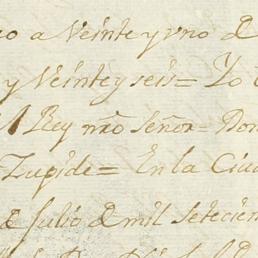 a Veinte y vno D
y Veinte y seis = Yo
Rey nro Señor = Don
Zupide = En la Ciu
de Julio D mil setecien